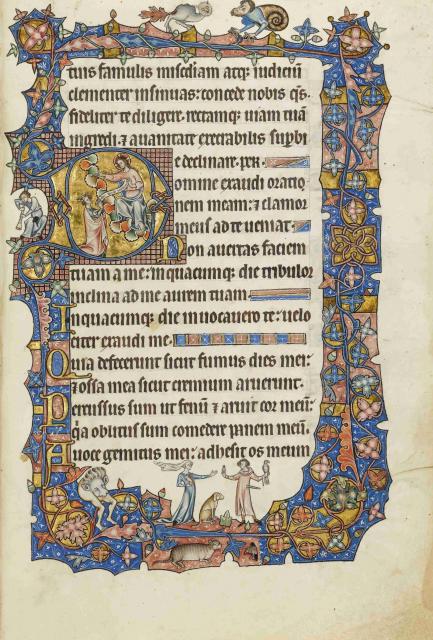 tuis famulis misc̄diam atq; iudiciū
clementer insinuas: concede nobis q̄s.
fideliter te diligere. rectamq; uiam tuā
ingredi. ⁊ auaritate execrabilis supbi
e declinare. per.
Domine exaudi oratio
nem meam: ⁊ clamor
meus ad te ueniat.
Non auertas faciem
tuam a me: in quacumq; die tribulor
inclina ad me aurem tuam.
In quacumq; die inuocauero te: uelo
citer exaudi me.
Quia defecerunt sicut fumus dies mei:
⁊ ossa mea sicut cremium aruerunt.
Percussus sum ut fenū ⁊ aruit cor meū:
q̇a oblitus sum comedere panem meū.
A uoce gemitus mei: adhesit os meum